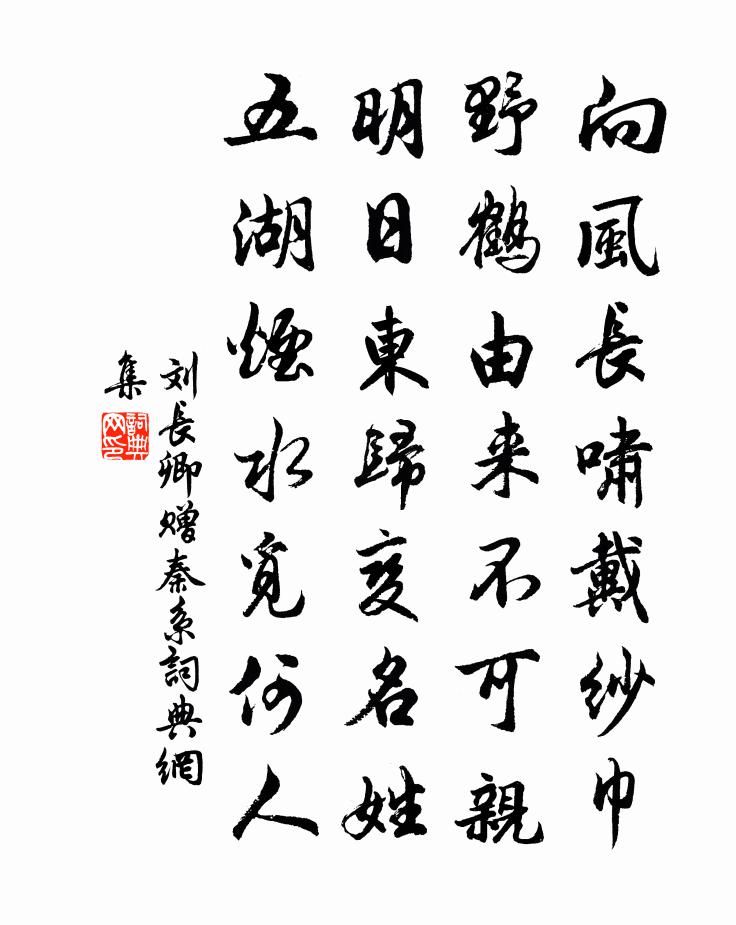 向風長嘯戴紗巾
野鶴由来不可親
明日東歸变名姓
五湖煙水覓何人
刘長卿赠秦系詞典網
集
詞典
网印